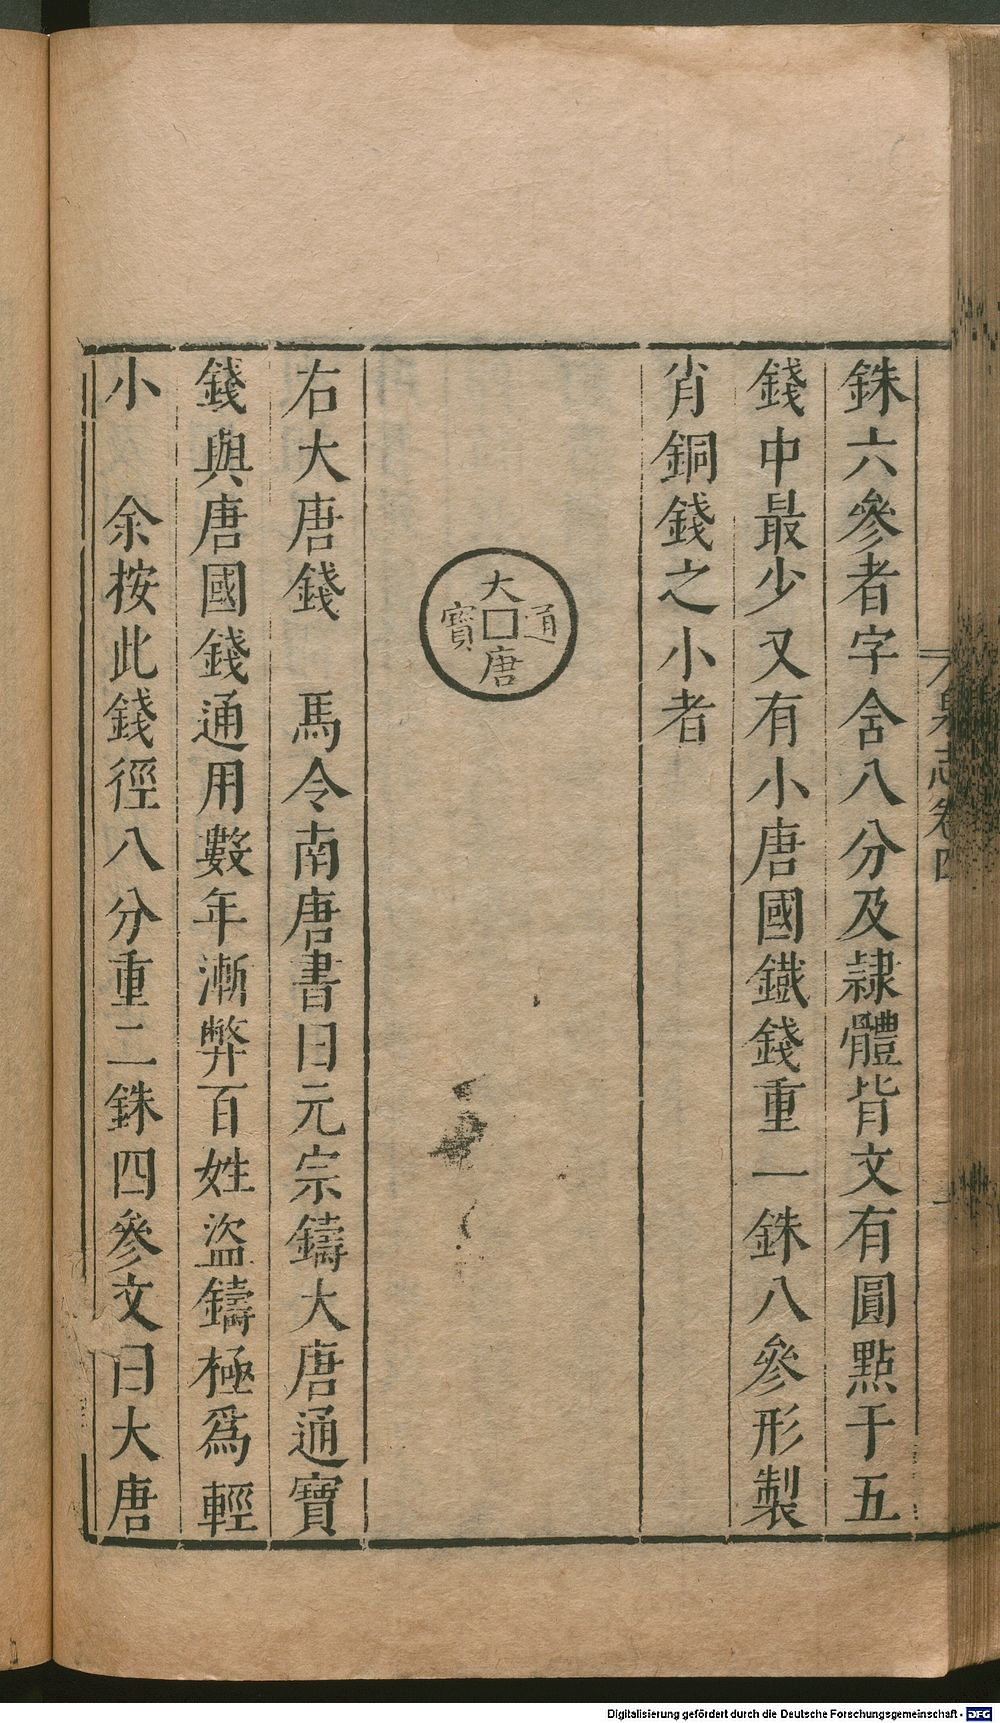 泉志卷四
銖六參者字含八分及隷體背文有圓點于五
錢中最少又有小唐國鐡錢重一銖八參形製
肖銅錢之小者
大唐通寶
右大唐錢　馬令南唐書曰元宗鑄大唐通寶
錢與唐國錢通用數年漸弊百姓盜鑄極爲輕
小　余按此錢徑八分重二銖四參文曰大唐
Digitalisierung gefördert durch die Deutsche Forschungsgemeinschaft - DFG